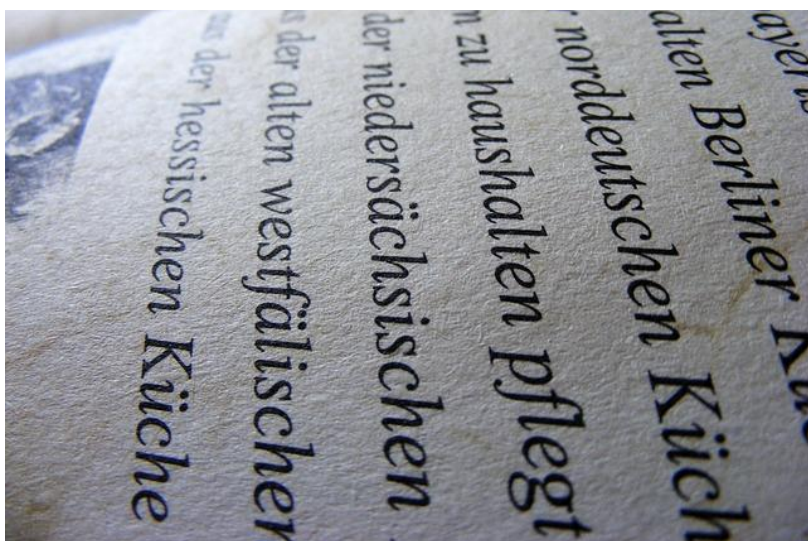 alten Berliner Kü
r norddeutschen Küch
n zu haushalten pflegt
der niedersächsischen
s der alten westfälischen
aus der hessischen Küche